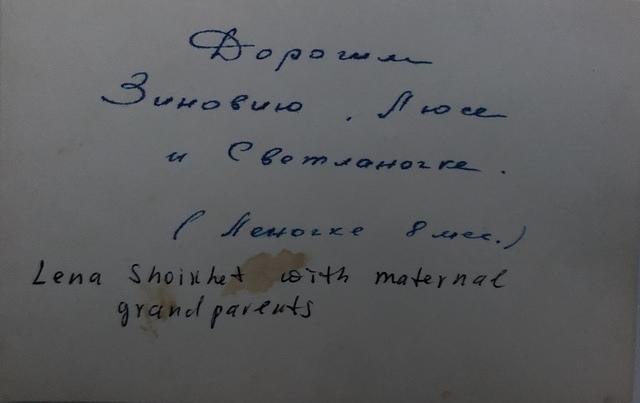 Дорогим
Зиновию, Люсе
и Светланочке.
(Леночке 8 мес.)
Lena Shoikhet with maternal
grandparents